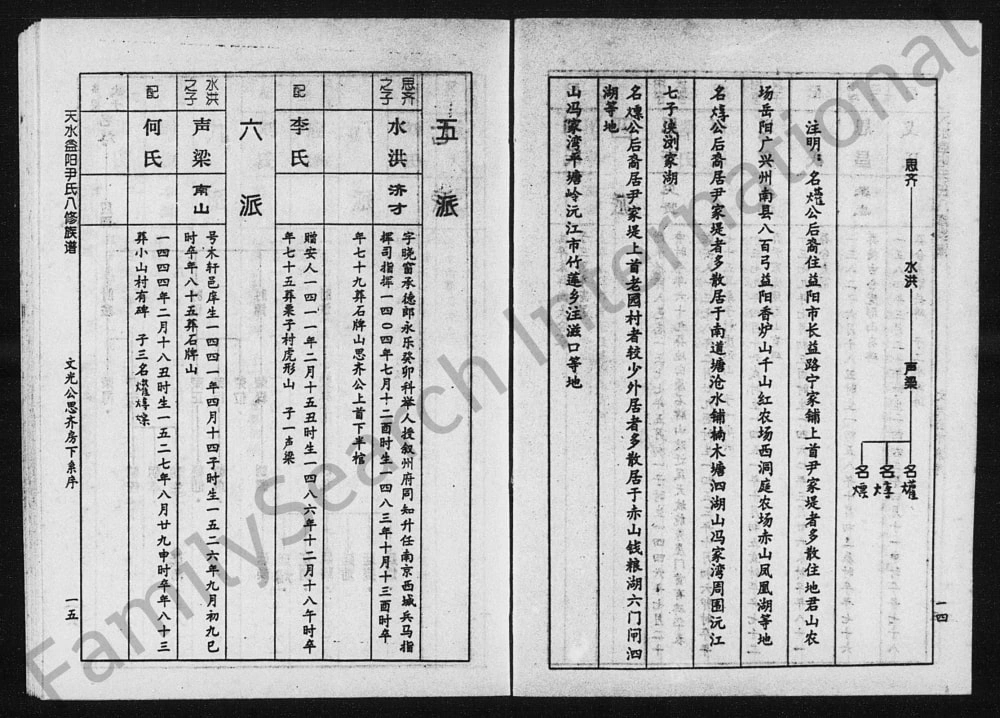 思齐 水洪 声梁
名㸌
名焞
名㷄
注明：名㸌公后裔住益阳市长益路宁家铺上首尹家堤者多散住地君山农
场岳阳广兴州南县八百弓益阳香炉山千山红农场西洞庭农场赤山凤凰湖等地
名焞公后裔居尹家堤者多散居于南道塘沧水铺楠木塘泗湖山冯家湾周围沅江
七子浃浏家湖
名㷄公后裔居尹家堤上首老园村者较少外居者多散居于赤山钱粮湖六门闸泗
湖等地
山冯家湾平塘岭沅江市竹莲乡注滋口等地
一四
五派
思齐之子
水洪 济才
字晓窗承德郎永乐癸卯科举人授叙州府同知升任南京西城兵马指
挥司指挥一四〇四年七月十二酉时生一四八三年十月十三酉时卒
年七十九葬石牌山思齐公上首下半棺
配 李氏
赠安人一四一一年二月十五丑时生一四八六年十二月十八午时卒
年七十五葬栗子村虎形山 子一声梁
六派
水洪之子
声梁 南山
号木轩邑庠生一四四一年四月十四子时生一五二六年九月初九巳
时卒年八十五葬石牌山
配 何氏
一四四四年二月十八丑时生一五二七年八月廿九申时卒年八十三
葬小山村有碑 子三名㸌焞㷄
天水益阳尹氏八修族谱
文光公思齐房下系序
一五
FamilySearch International